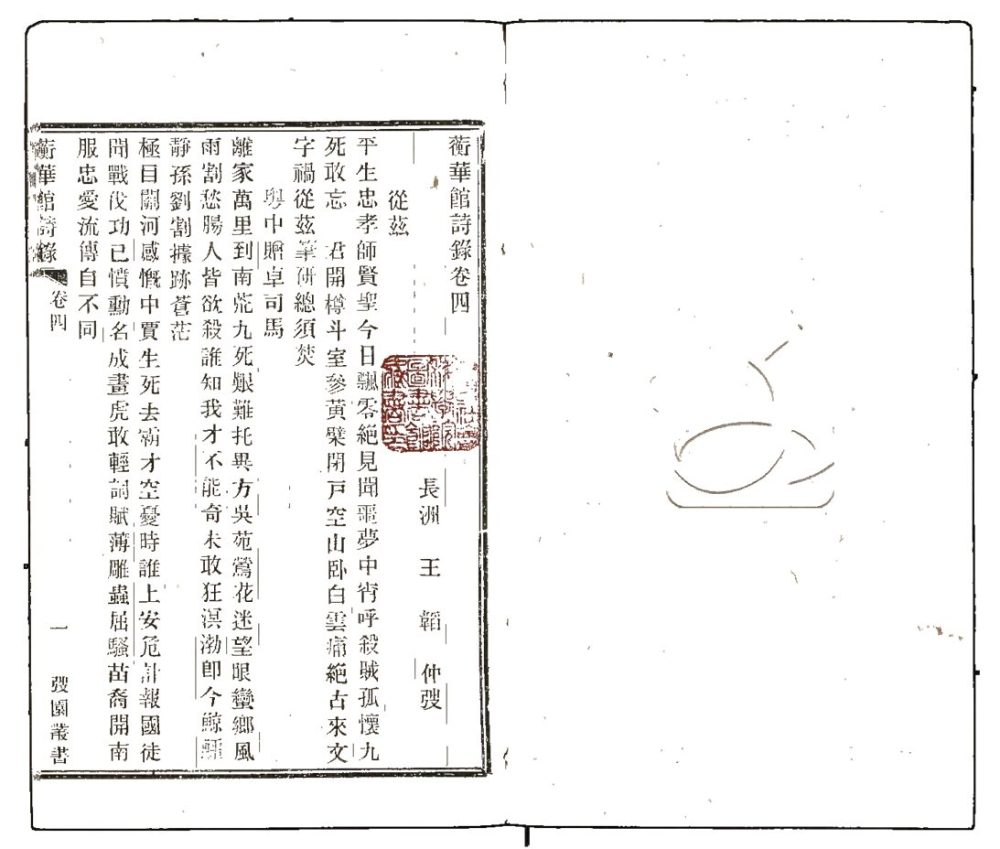 蘅華館詩錄卷四
長洲 王 韜 仲弢
從茲
平生忠孝師賢聖今日飄零絕見聞噩夢中宵呼殺賊孤懷九
死敢忘 君開樽斗室參黃檗閉戸空山臥白雲痛絕古來文
字禍從茲筆研總須焚
粤中贈卓司馬
離家萬里到南荒九死艱難托異方吳苑鶯花迷望眼蠻鄉風
雨割愁腸人皆欲殺誰知我才不能奇未敢狂溟渤卽今鯨鱷
靜孫劉割據跡蒼茫
極目關河感慨中賈生死去霸才空憂時誰上安危計報國徒
問戰伐功已憤勳名成畫虎敢輕詞賦薄雕蟲屈騷苗裔開南
服忠愛流傳自不同
蘅華館詩錄 卷四 一 弢園叢書